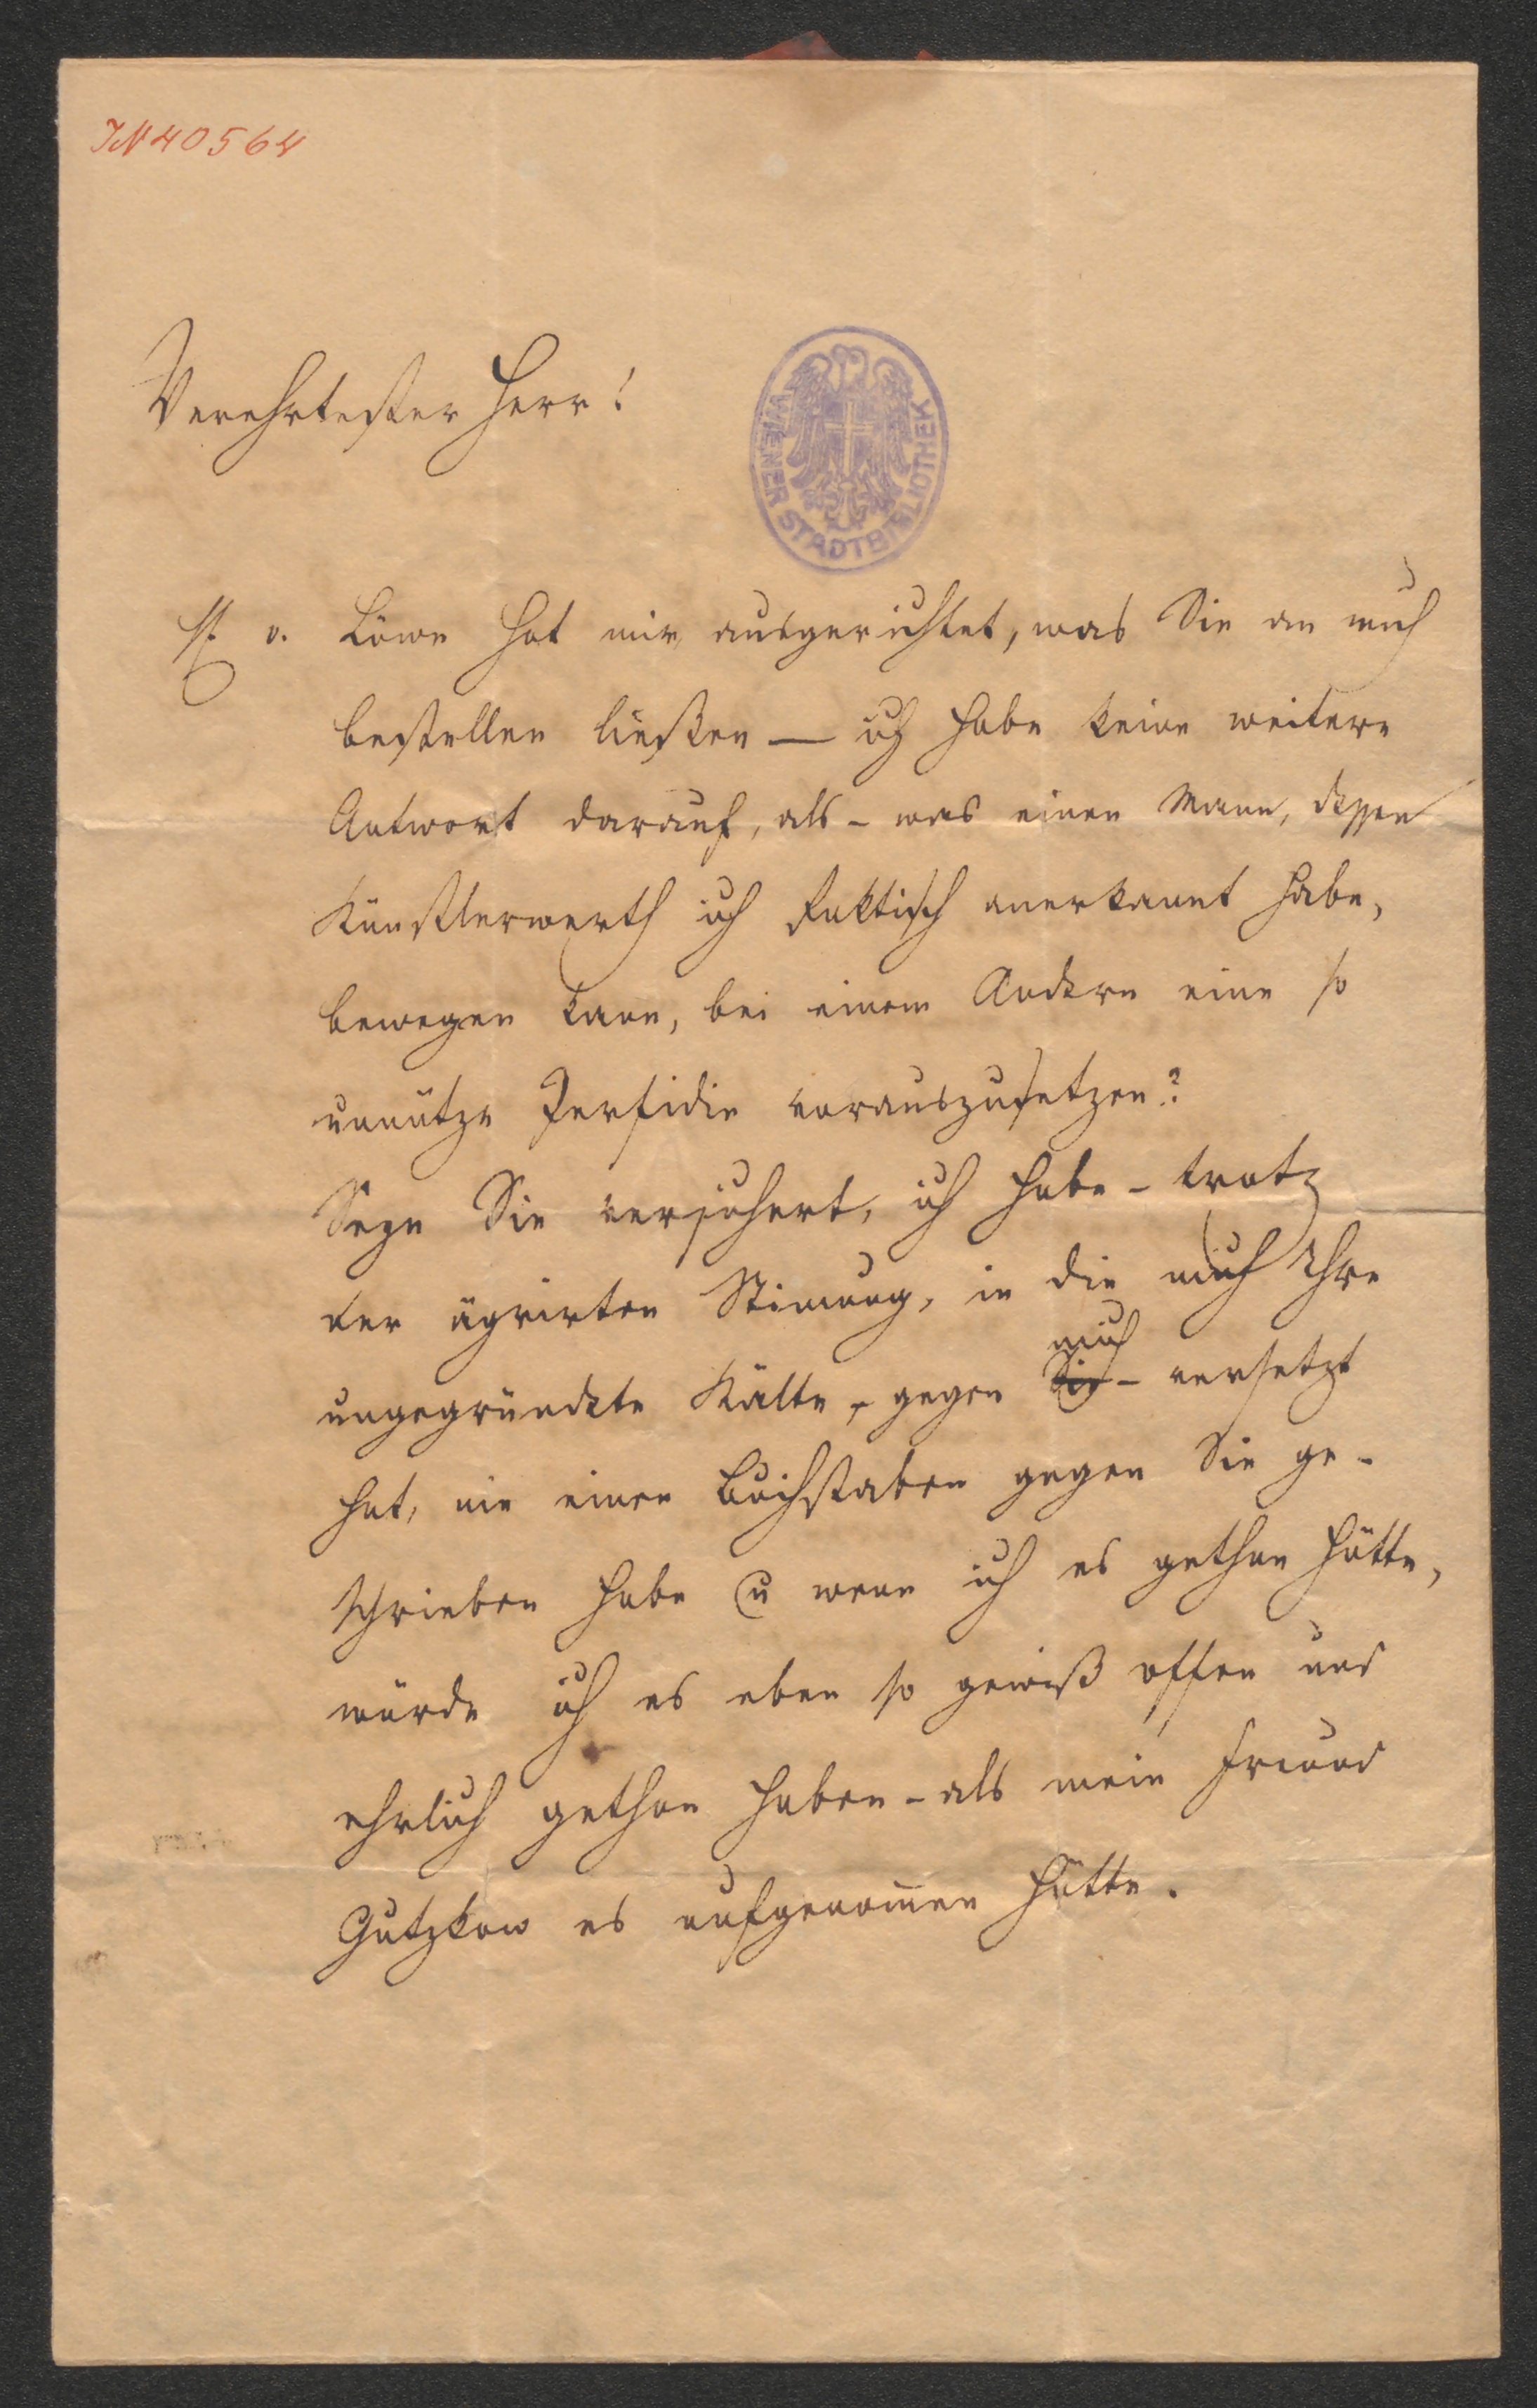 IN 40564
Verehrtester Herr!
WIENER STADTBIBLIOTHEK
H. v. Löwe hat mir ausgerichtet, was Sie an mich
bestellen ließen — ich habe keine weitere
Antwort darauf, als - was einen Mann, dessen
Künstlerwerth ich faktisch anerkannt habe,
bewegen kann, bei einem Andern eine so
unnütze Perfidie vorauszusetzen?
Seyn Sie versichert, ich habe - trotz
der ägrirten Stimung, in die mich Ihre
mich
ungegründete Kälte - gegen Sie - versetzt
hat, nie einen Buchstaben gegen Sie ge-
schrieben habe u wenn ich es gethan hätte,
würde ich es eben so gewiß offen und
ehrlich gethan haben - als mein Freund
Gutzkow es aufgenomen hätte.